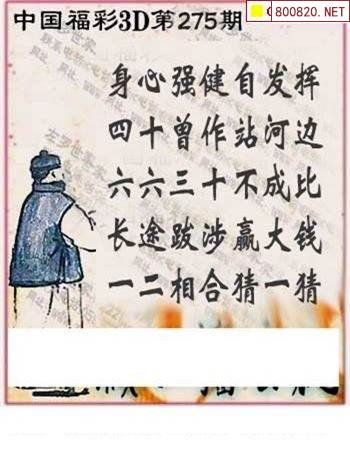 中国福彩3D第275期
800820.NET
身心强健自发挥
四十曾作站河边
六六三十不成比
长途跋涉赢大钱
一二相合猜一猜